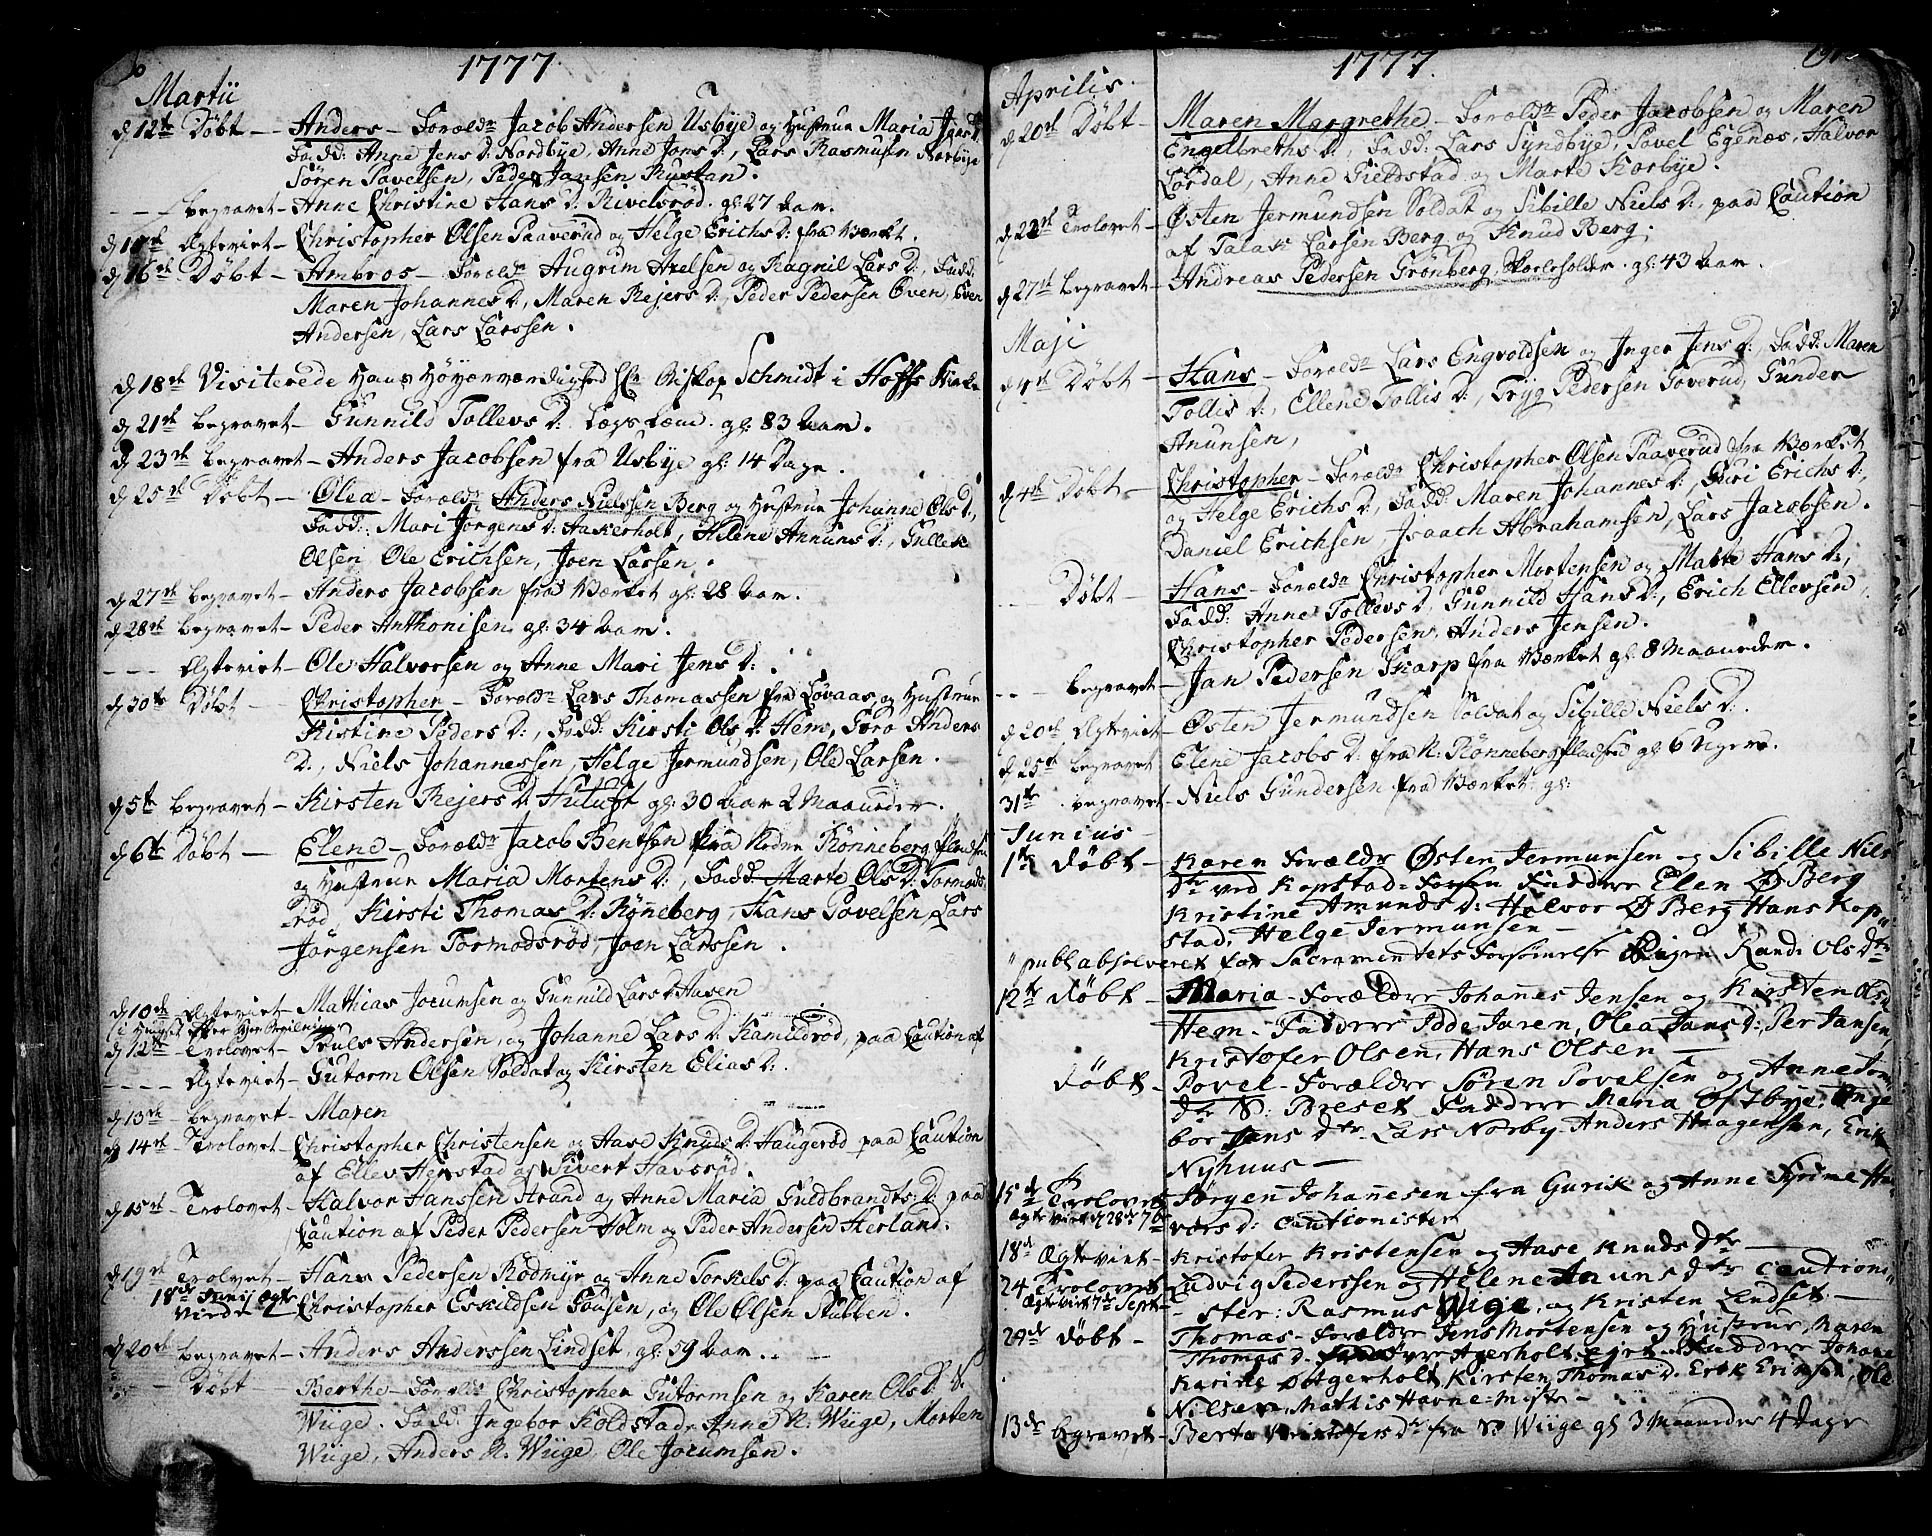 1777.
Martii
d 12te Døbt — Anders — Foræld: Jacob Andersen Usbye og Hustrue Maria
Fadd: Anne Jens D: Nordbye, Anne Jons D:, Lars Rasmusen Norbye
Søren Povelsen, Peder Jansen Rustan.
begravet — Anne Christine Hans D: Rivelsrød. gl: 27 Aar.
Ægteviet — Christopher Olsen Paaverud og Helge Erichs D: fra Værket.
d 16de Døbt — Ambros — Foræld: Augrim Axelsen og Ragnil Lars D:, Fadd:
Maren Johannes D:, Maren Rejers D: Peder Pedersen Øven, Even
Andersen, Lars Larssen.
d 18de Visiterede Hans Høyærværdighed Hr Biskop Schmidt i Hoffs Kirke
d 21de begravet — Gunnild Tollevs D: Lægs Lem. gl: 83 Aar.
d 23de begravet — Anders Jacobsen fra Usbye gl: 14 Dage.
d 25de Døbt — Olea — Foræld: Anders Nielssen Berg og Hustrue Johanne Ols D:,
Fadd: Mari Jørgens D: Haskerholt, Helene Annuns D:, Gullek
Olsen Ole Erichsen, Joen Larsen.
d 27de begravet — Anders Jacobsen fra Værket gl: 28 Aar.
d 28de begravet — Peder Anthonisen gl: 34 Aar.
- - - Ægteviet — Ole Halvorsen og Anne Mari Jens D:
d 30te Døbt — Christopher — Foræld: Lars Thomassen fra Løvaas, og Hustrue
Kistine Peders D:, Fadd: Kirsti Ols D: Hem, Gøro Anders
D:, Niels Johannessen, Helge Jermundsen, Ole Larsen.
d 5te begravet — Kirsten Rejers D: Hutuft gl: 30 Aar 2 Maaneder.
d 6te Døbt — Elene — Foræld: Jacob Bentsen fra Nedre Rønneberg
og Hustrue Maria Mortens D:, Fadd: Marte Ols D: Tormods
rød, Kirsti Thomas D: Rønneberg, Hans Povelsen, Lars
Jørgensen Tormodsrød, Joen Larssen.
d 10de Ægteviet — Mathias Jocumsen og Gunnild Lars D: Aasen
d 12te Trolovet — Truls Andersen, og Johanne Lars D: Kamildrød, paa Caution af
- - - - Ægteviet — Gutorm Olsen Soldat og Kirsten Elias D:.
d 13de begravet — Maren
d 14de Trolovet — Christopher Christensen og Aase Knuds D: Haugerød paa Caution
af Ellev Henstad og Sivert Havsrød.
d 15de Trolovet — Halvor Hanssen Strand og Anne Maria Guldbrandts D: paa
Caution af Peder Pedersen Holm og Peder Andersen Herland.
d 19de Trolvet — Hans Pedersen Rødmyr og Anne Torkels D: paa Caution af
18de Junij Ægte
Virdet Christopher Eskildsen Gousen, og Ole Olsen Stubben.
d 20de begravet — Anders Anderssen Lindset gl: 59 Aar.
- Døbt — Berthe — Foræld: Christopher Gutormsen og Karen Ols D: S.
Wiige. Fadd: Ingebor Koldstad, Anne N. Wiige, Morten
Wiige, Anders N. Wiige, Ole Jocumsen.
1777.
Aprilis.
d 20de Døbt — Maren Margrethe — Foræld: Peder Jacobsen og Maren
Engelbreths D:, Fadd: Lars Syndbye, Povel Egenæs, Halvor
Lørdal, Anne Gieldstad og Marte Korbye.
d 22de Trolovet — Østen Jermundsen Soldat og Sibille Niels D:, paa Caution
af Talak Larsen Berg og Knud Berg.
d 27de begravet — Andreas Pedersen Grønberg, Skoleholder. gl: 43 Aar.
Maji
d 4de Døbt — Hans — Foræld: Lars Engvoldsen og Inger Jens D:, Fadd: Maren
Tollis D:, Ellene Tollis D:, Tryg Pedersen Goverud, Gunder
Anunsen,
d 4de Døbt — Christopher — Foræld: Christopher Olsen Paaverud fra Værket
og Helge Erichs D:, Fadd: Maren Johannes D:, Guri Erichs D:,
Daniel Erichsen, Isaach Abrahamsen, Lars Jacobsen.
- - Døbt — Hans — Foræld: Christopher Mortensen og Matte Hans D:,
Fadd: Anne Tollevs D:, Gunnild Hans D:, Erich Ellevsen,
Christopher Pedersen, Anders Jensen.
- - begravet — Jan Pedersen Skarp fra Værket gl: 8 Maaneder.
d 20de Ægteviet — Østen Jermundsen Soldat og Sibille Niels D:.
d 25de begravet Elene Jacobs D: fra N: Rønneberg Pladsed gl: 6 Uger.
31te begravet — Niels Gundersen fra Værket gl:
Junius —
1te døbt — Karen Forældre Østen Jermunsen og Sibille Nils
Dtr ved Kopstad Faddere Elen Ø Berg
Kristine Amunds D: Halvor Ø Berg Hans Kop
stad, Helge Jermunsen —
publ absolveret for Sacramentets Forsømelse Pigen Randi Ols Dtr
12te døbt — Maria — Forældre Johannes Jensen og Kirsten Ols D
Hegn. Faddere Idde Jaren, Olea Jans D:, Per Jansen,
Kristofer Olsen, Hans Olsen —
døbt — Povel — Forældre Søren Povelsen og Anne Jon
dtr S: Breset Faddere Maria Ø Isbye, Inge
bor Jans dtr. Lars Norby Anders Haagensen, Erik
Nyhuus —
15de Trolovet Jørgen Johannesen fra Gurik og Anne Hal
Ægte Viet d 28de
vors D: Cautionister
18de Ægteviet — Kristofer Kristensen og Aase Knuds dtr —
24 Trolovet Ludvig Pederssen og Helene Anuns dtr Cautioni
Ægte Viet 7de Sept
ster: Rasmus Wige og Kristen Lindset —
29de døbt — Thomas — Forældre Jens Mortensen og Hustrue, Maren
Thomas D. Agerholt ejet Faddere Johane
Karine Ø Agerholt, Kirsten Thomas D. Erik Eriksen, Ole
Nilsen, Mathis Havne-
13de begravet — Berta Kristofers dtr fra S: Wiige gl 3 Maaneder 4 Dage